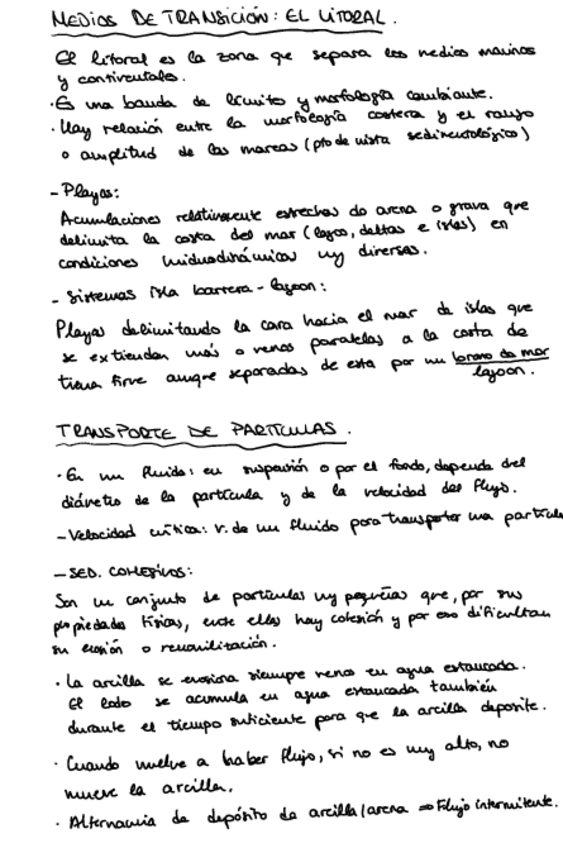 MEDIOS DE TRANSICIÓN: EL LITORAL.
El litoral es la zona que separa los medios marinos
y continentales.
· Es una banda de límites y morfología cambiante.
· Hay relación entre la morfología costera y el rango
o amplitud de las mareas (pto de vista sedimentológico)
- Playas:
Acumulaciones relativamente estrechas de arena o grava que
delimita la costa del mar (lagos, deltas e islas) en
condiciones hidrodinámicas muy diversas.
- Sistemas isla barrera - lagoon:
Playas delimitando la cara hacia el mar de islas que
se extienden más o menos paralelas a la costa de
tierra firme aunque separadas de esta por un brazo de mar
lagoon.
TRANSPORTE DE PARTÍCULAS.
· En un fluido: en suspensión o por el fondo, depende del
diámetro de la partícula y de la velocidad del flujo.
- Velocidad crítica: v. de un fluido para transportar una partícula
- SED. COHESIVOS:
Son un conjunto de partículas muy pequeñas que, por sus
propiedades físicas, entre ellas hay cohesión y por eso dificultan
su erosión o removilización.
· La arcilla se erosiona siempre menos en agua estancada.
El lodo se acumula en agua estancada también
durante el tiempo suficiente para que la arcilla deposite.
· Cuando vuelve a haber flujo, si no es muy alto, no
mueve la arcilla.
· Alternancia de depósito de arcilla/arena ⇒ Flujo intermitente.